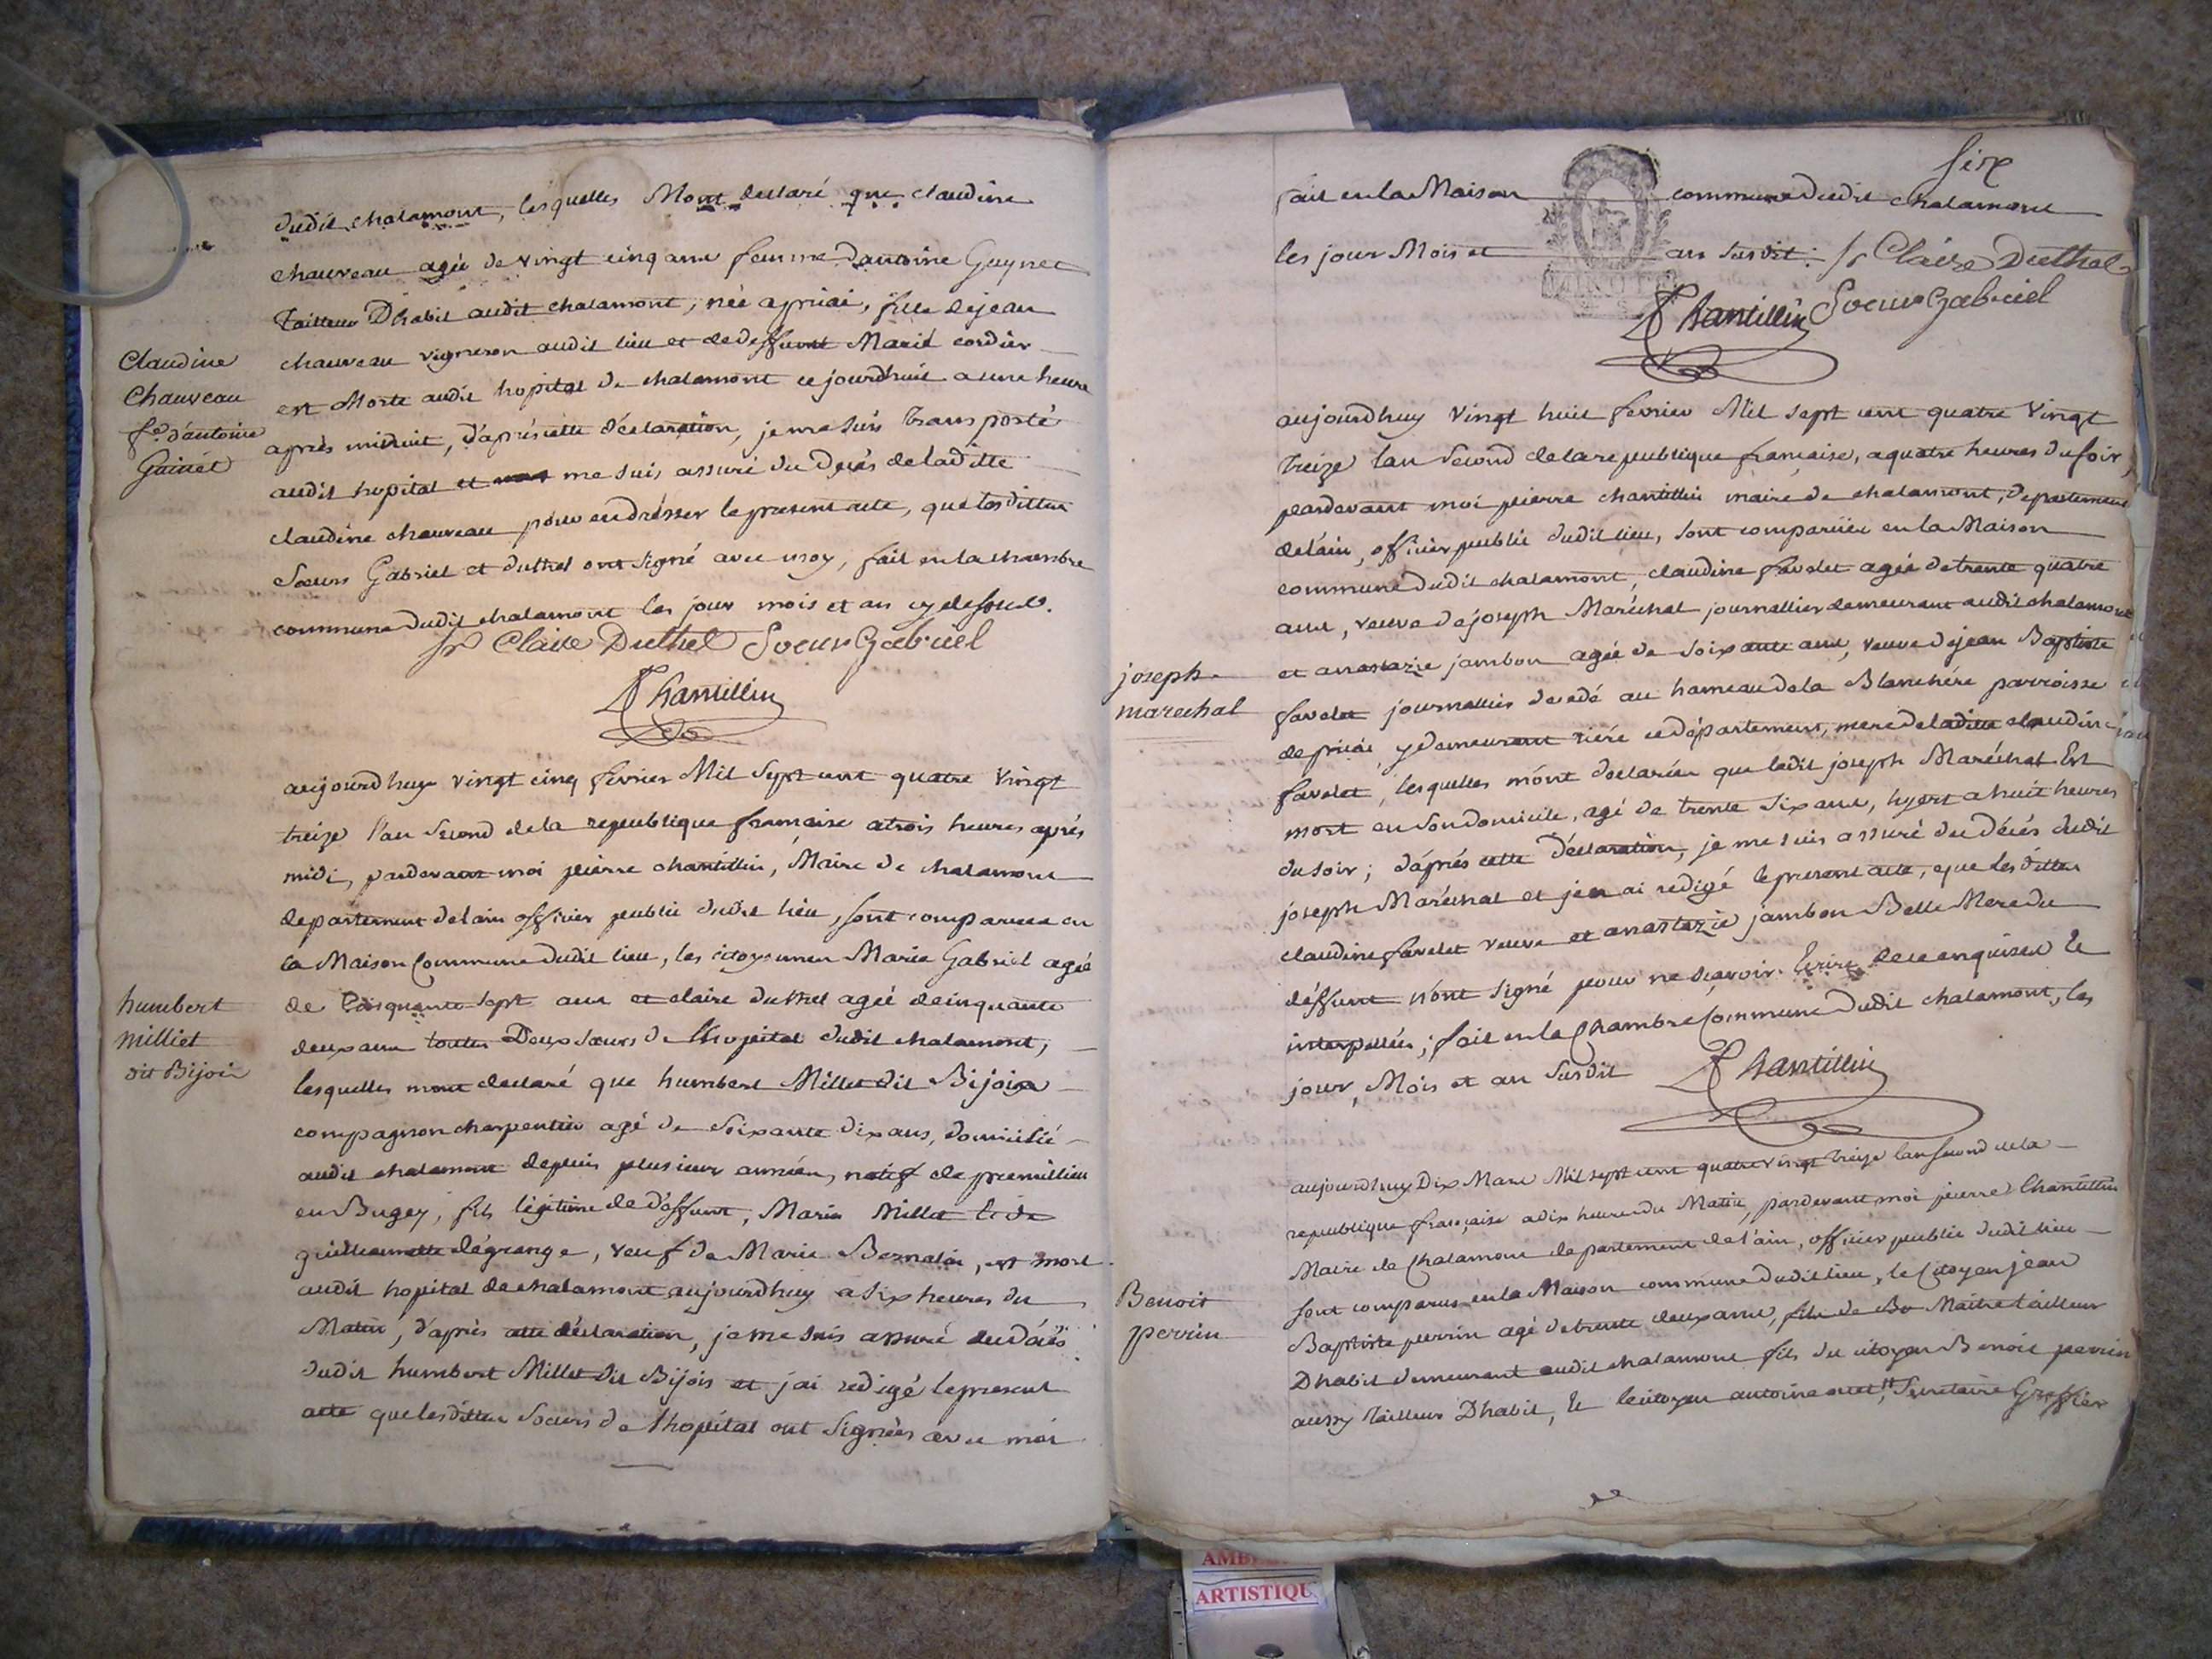 dudit chalamont, lesquelles Mont declaré que claudine
chauveau agée de vingt cinq ans femme dantoine Guynet
Tailleur Dhabit audit chalamont, née a priai, fille dejean
chauveau vigneron audit lieu et de deffunte Marie cordier
est Morte audit hopital de chalamont ce jourdhuit a une heure
après minuit, d'après cette déclaration, je me suis transporté
audit hopital et me suis assuré du Decés de laditte
claudine chauveau pour en drésser le present acte, que les dittes
Soeurs Gabriel et duthel ont signé avec moy, fait en la chambre
commune dudit chalamont les jour mois et an cy dessus.
Claudine
Chauveau
fe. d'antoine
Guinet
Sr Claire Duthel Soeur Gabriel
PChantillin
aujourdhuy vingt cinq fevrier Mil Sept cent quatre Vingt
treize l'an Second de la republique francaise a trois heures après
midi, pardevant moi pierre chantillin, Maire de chalamont
departement delain officier public dudit lieu, sont comparues en
la Maison Commune dudit lieu, les citoyennes Marie Gabriel agée
de Cinquante sept ans et claire duthel agée de cinquante
deux ans toutes Deux soeurs de lhopital dudit chalamont,
lesquelles mont declaré que humbert Millet dit Bijoin
compagnon charpentier agé de Soixante dix ans, domicilié
audit chalamont depuis plusieurs années, natif de premillieu
en Bugey, fils légitime de déffunt, Marin Millet et de
guillaumette lagrange, veuf de Marie Bernalin, est mort
audit hopital de chalamont aujourdhuy a six heures du
Matin, d'après cette déclaration, je me suis assuré du décès
dudit humbert Millet dit Bijois et j'ai redigé le present
acte que lesdittes Soeurs de lhopital ont Signées avec moi
humbert
Milliet
dit Bijoin
Six
fait en la Maison commune dudit chalamont
les jour Mois et an susdit. Sr Claire Duthel
PChantillin Soeur Gabriel
aujourdhuy vingt huit fevrier Mil sept cent quatre Vingt
treize lan Second de la republique francaise, a quatre heures du soir,
pardevant moi pierre chantillin maire de chalamont, departement
delain, officier public dudit lieu, sont compariies en la Maison
commune dudit chalamont, claudine favelet agée de trente quatre
ans, veuve de joseph Maréchal journallier demeurant audit chalamont
et anastazie jambon agée de Soixante ans, veuve dejean Baptiste
favelet journallier decedé au hameau de la Blanchére parroisse
de priai, y demeurant riére ce département, mere de laditte claudine
favelet, lesquelles m'ont declarées que ledit joseph Maréchal Est
mort en son domicile, agé de trente six ans, hyert a huit heures
du soir; d'après cette déclaration, je me suis assuré du décés dudit
joseph Maréchal et j'en ai redigé le present acte, que les dittes
claudine favelet veuve et anastazie jambon Belle Mere du
déffunt n'ont signé pour ne sçavoir Ecrire de ce enquises et
interpellées; fait en la Chambre Commune dudit chalamont, les
jour, Mois et an Susdit PChantillin
joseph
marechal
aujourdhuy Dix Mars Mil sept cent quatre vingt treize lan second de la
republique française a dix heures du Matin, pardevant moi pierre Chantillin
Maire de Chalamont departement de l'ain, officier public dudit lieu
sont comparus en la Maison commune dudit lieu, le Citoyen jean
Baptiste perrin agé de trente deux ans, fils de Be Maître tailleur
Dhabit demeurant audit chalamont fils du citoyen Benoit perrin
aussy tailleur Dhabit, et le citoyen antoine Secretaire Greffier
Benoit
perrin
ARTISTIQU